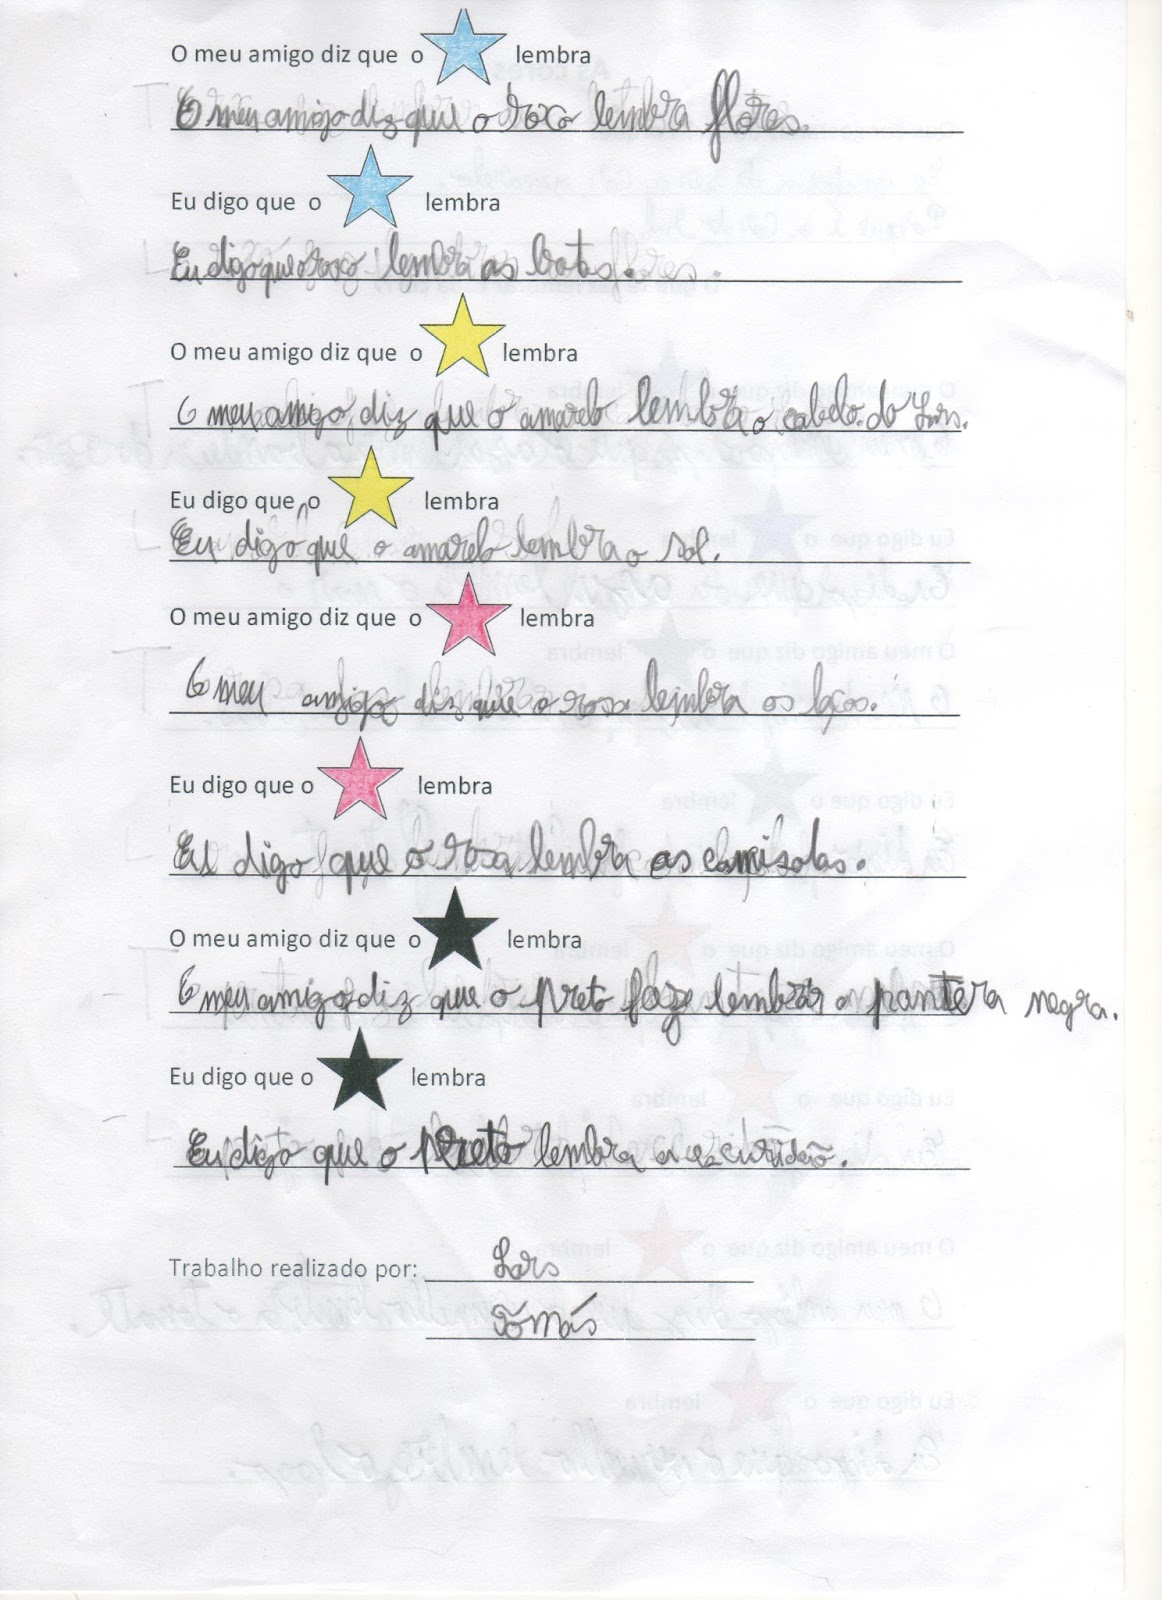 O meu amigo diz que o lembra
O meu amigo diz que o roxo lembra flores.
Eu digo que o lembra
Eu digo que o roxo lembra as botas.
O meu amigo diz que o lembra
O meu amigo diz que o amarelo lembra o cabelo do Lars.
Eu digo que o lembra
Eu digo que o amarelo lembra o sol.
O meu amigo diz que o lembra
O meu amigo diz que o rosa lembra os laços.
Eu digo que o lembra
Eu digo que o rosa lembra as camisolas.
O meu amigo diz que o lembra
O meu amigo diz que o preto faze lembrar a pantera negra.
Eu digo que o lembra
Eu digo que o preto lembra a escuridão.
Trabalho realizado por: Lars
Tomás